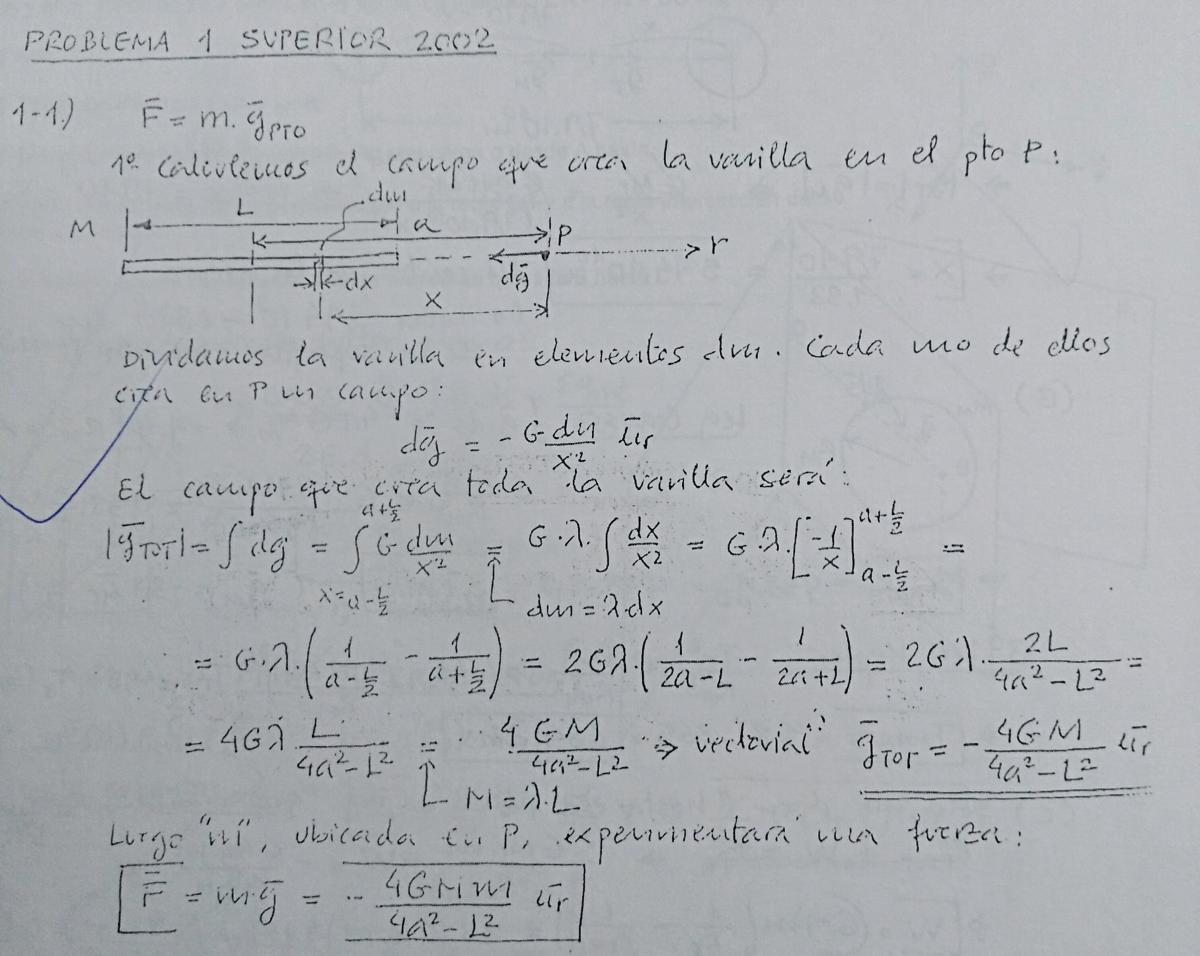 PROBLEMA 1 SUPERIOR 2002
1-1.) F̄ = m. ḡ_PTO
1º Calculemos el campo que crea la varilla en el pto P:
L dm
M a P
r
dx dḡ
x
Dividamos la varilla en elementos dm. Cada uno de ellos
crea en P un campo:
dḡ = - G dm/x² ūr
El campo que crea toda la varilla será:
|ḡ_TOT| = ∫ dg = ∫_{x=a-L/2}^{a+L/2} G dm/x² = G·λ·∫ dx/x² = G·λ·[-1/x]_{a-L/2}^{a+L/2} =
dm = λ·dx
= G·λ·(1/(a-L/2) - 1/(a+L/2)) = 2Gλ·(1/(2a-L) - 1/(2a+L)) = 2Gλ·2L/(4a²-L²) =
= 4Gλ L/(4a²-L²) = 4GM/(4a²-L²) ⇒ vectorial: ḡ_TOT = - 4GM/(4a²-L²) ūr
M = λ·L
Luego "m", ubicada en P, experimentará una fuerza:
F̄ = m·ḡ = - 4GMm/(4a²-L²) ūr